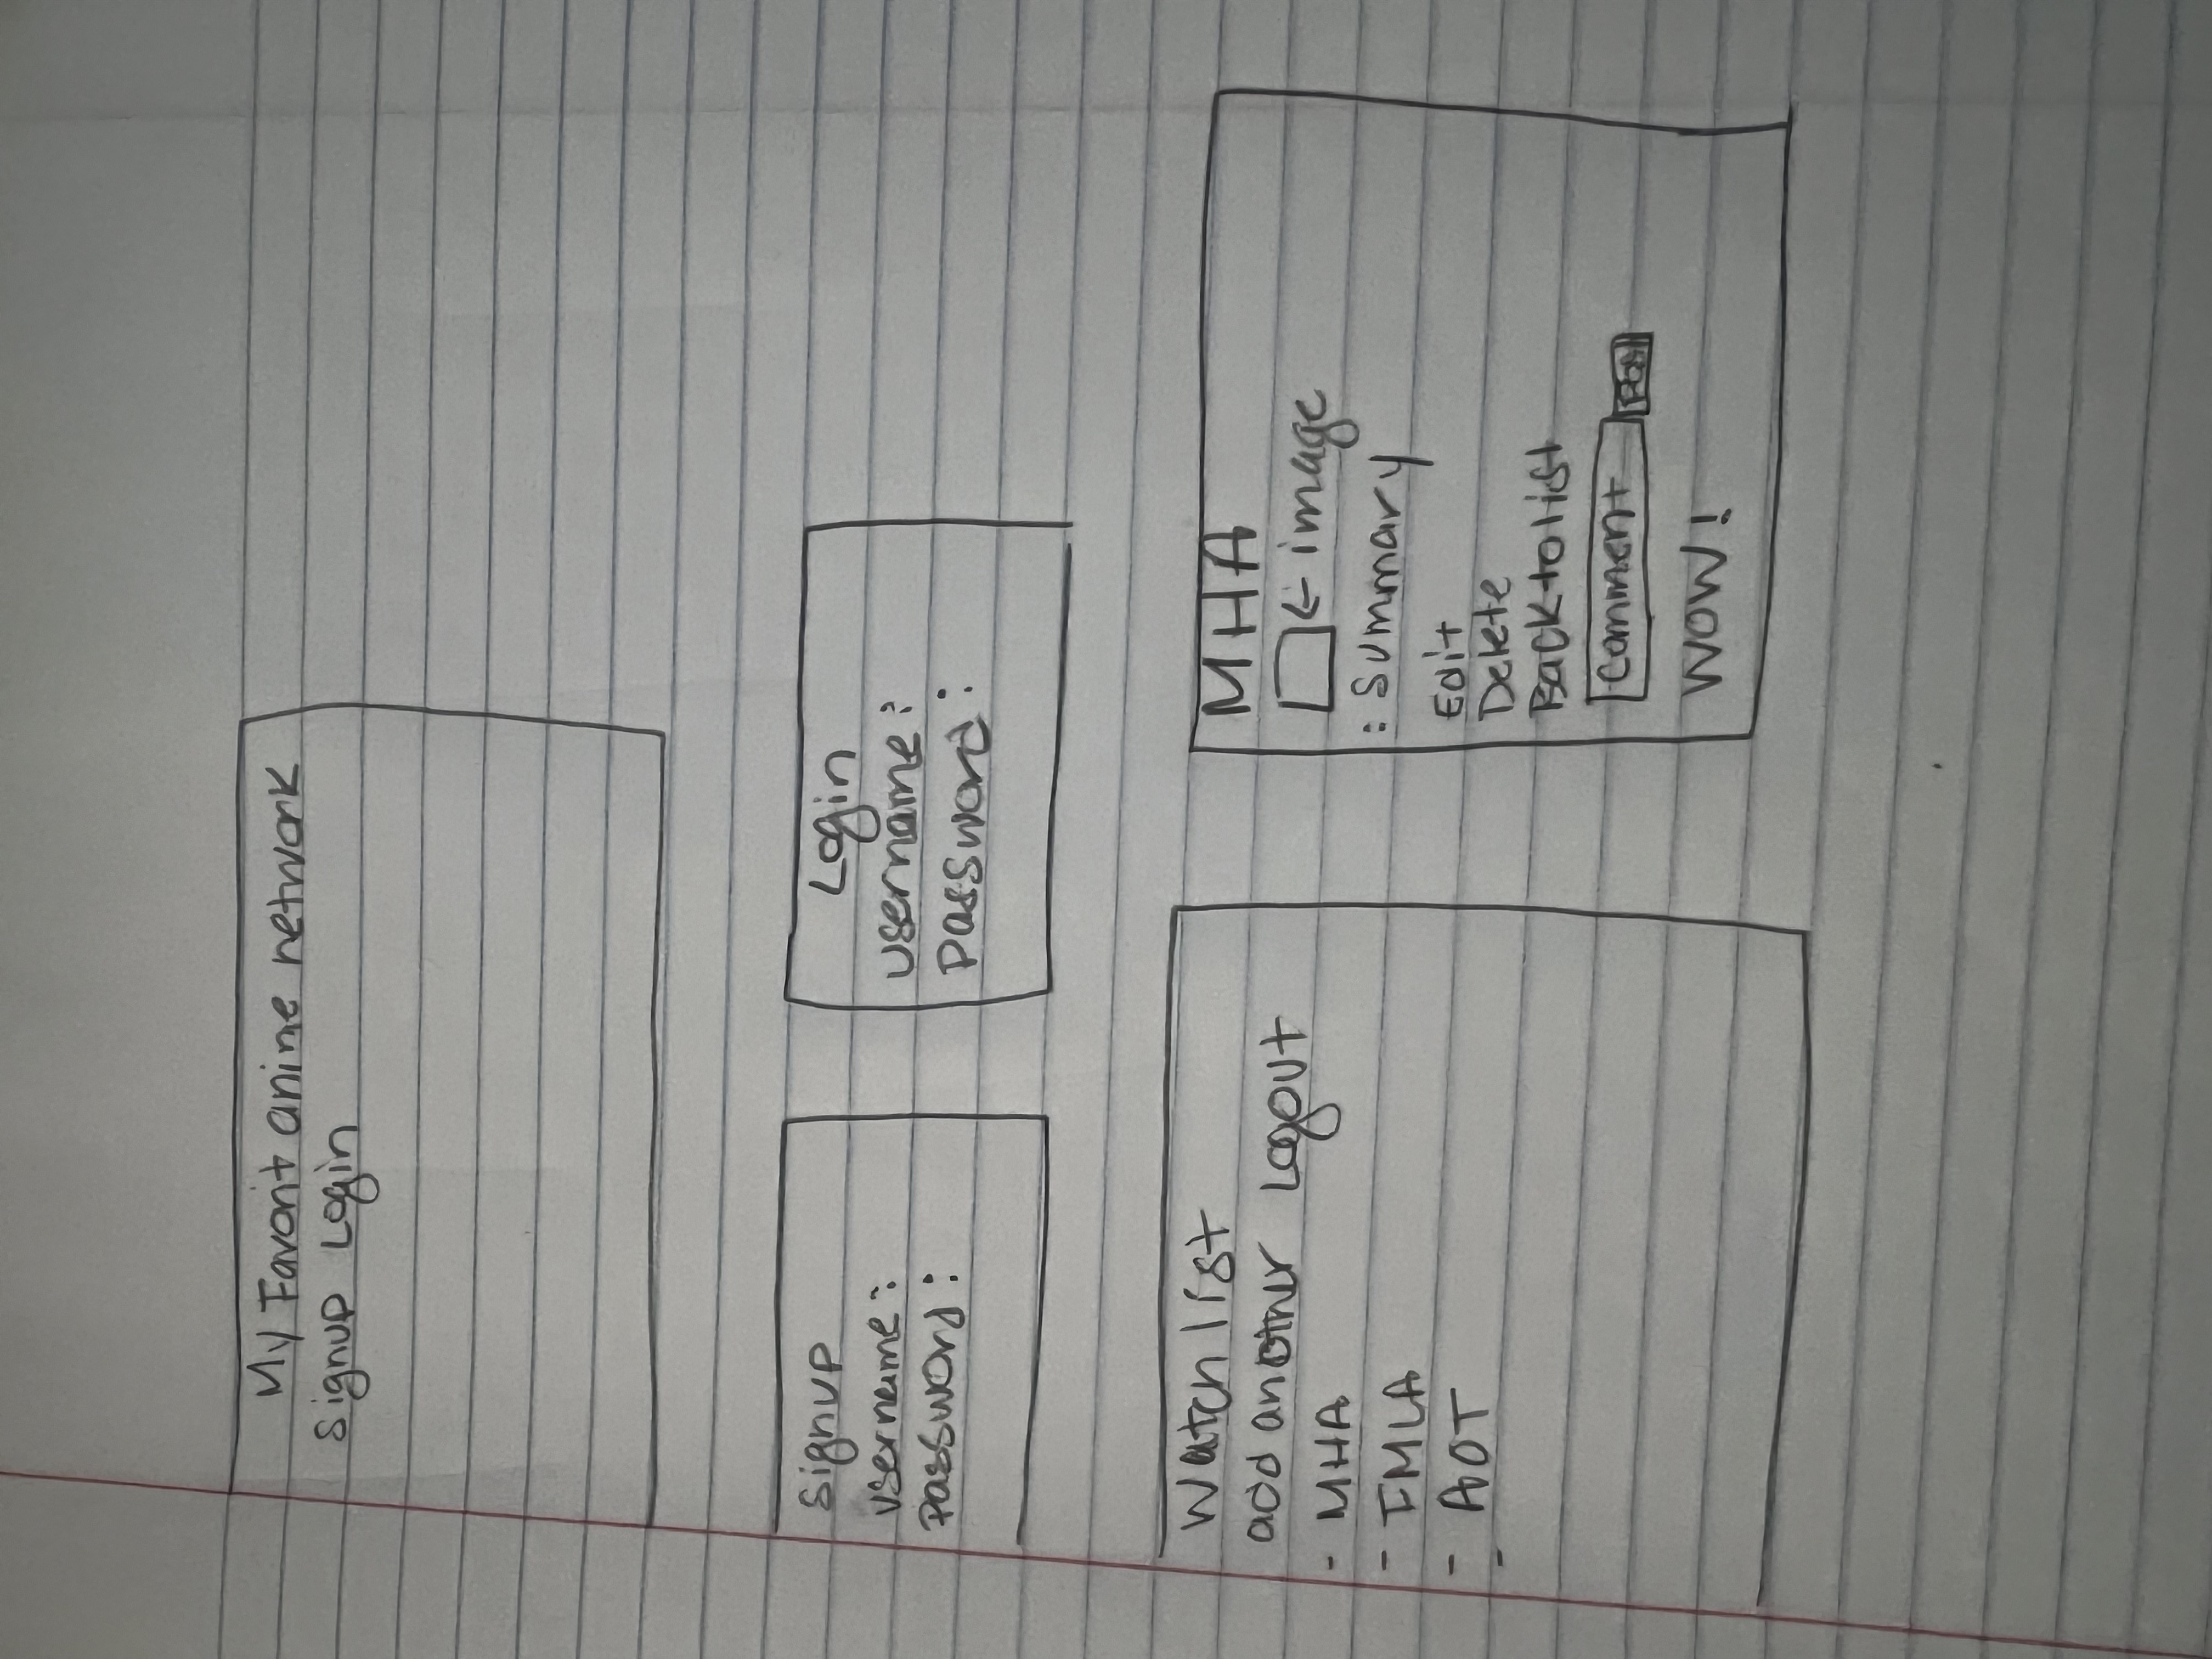 My Favorit anime network
Signup Login
Signup
username:
Password:
Login
username:
Password:
Watch list
add another Logout
- MHA
- FMLA
- AOT
-
MHA
← image
: Summary
Edit
Delete
Back to list
Comment Post
WOW!